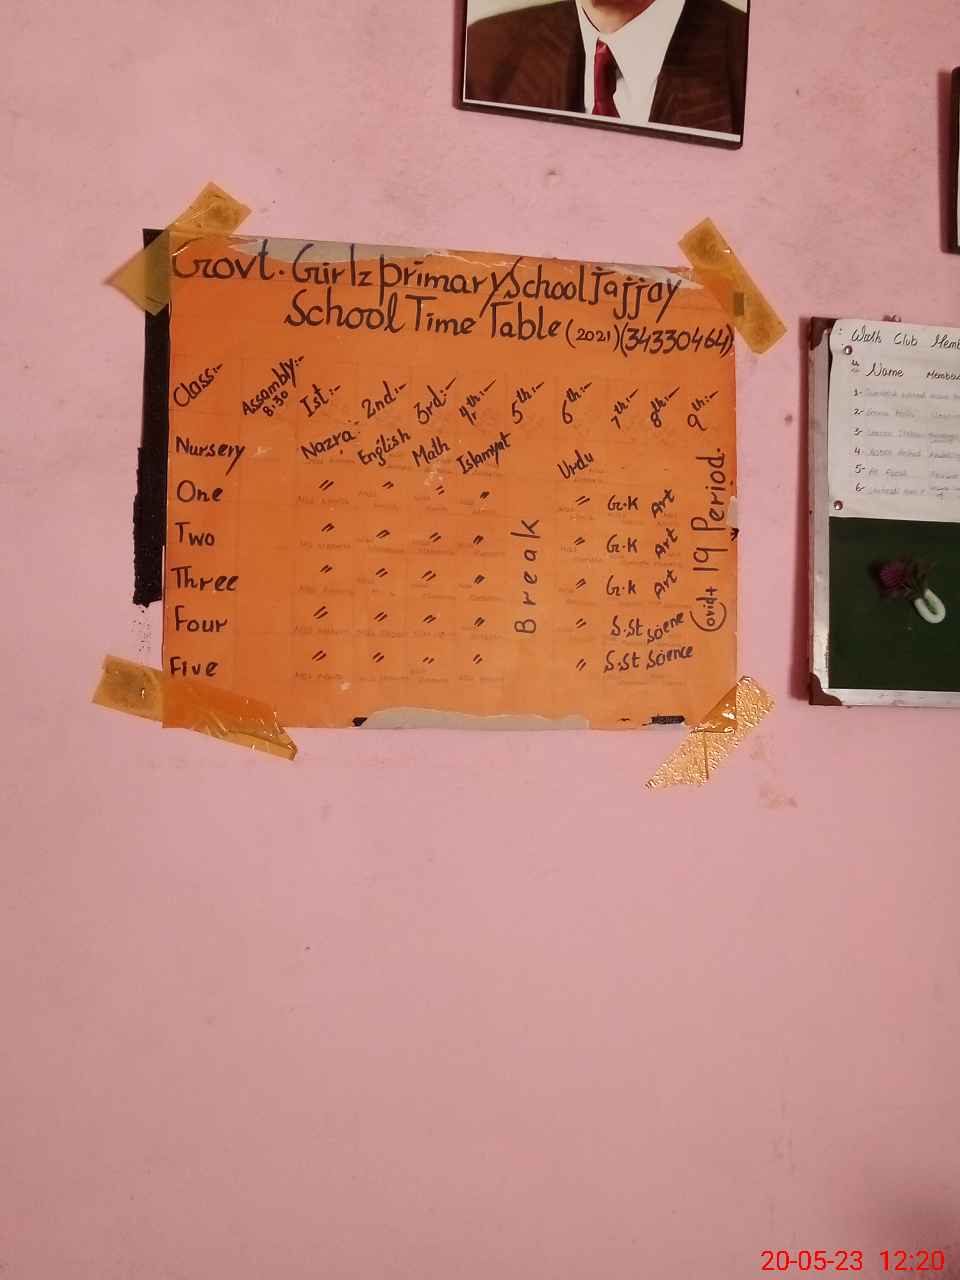 Govt. Girlz primary School Jajjay
School Time Table (2021) (34330464)
Class:- Assembly:- 8:30 Ist:- 2nd:- 3rd:- 4th:- 5th:- 6th:- 7th:- 8th:- 9th:-
Nursery Nazra English Math Islamyat Urdu
One " " " " " G.K Art
Two " " " " " G.K Art
Three " " " " " G.K Art
Four " " " " " S.st Sciene
Five " " " " " S.st Science
Break
Covid 19 Period.
Wash Club Memb
Name Membe
1-
2-
3-
4-
5-
6-
20-05-23 12:20